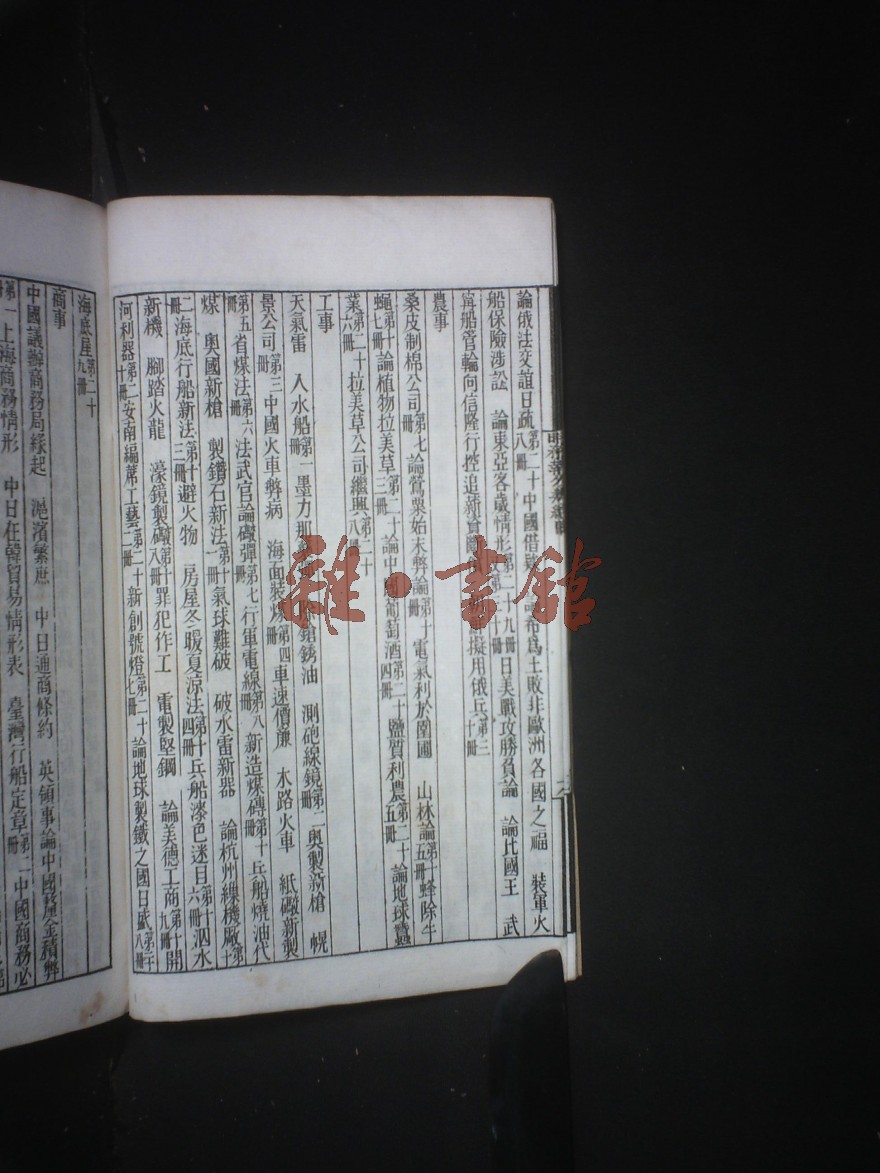 論俄法交誼日疏第二十八冊 中國借 希爲土敗非歐洲各國之福 裝軍火
船保險涉訟 論東亞客歲情形第二十九冊 日美戰攻勝負論 論比國王 武
甯船管輪向信隆行控追薪 擬用俄兵第三十冊
農事
桑皮制棉公司第七冊 論鶯粟始末弊論第十冊 電氣利於園圃 山林論第十五冊 蜂除牛
蠅第十七冊 論植物拉美草第二十三冊 論中 葡萄酒第二十四冊 鹽質利農第二十五冊 論地球蠶
業第二十六冊 拉美草公司繼興第二十八冊
工事
天氣雷 入水船第一冊 墨力那 除鎗銹油 測砲線鏡第二冊 奧製新槍 幌
景公司第三冊 中國火車弊病 海面裝煤第四冊 車速價廉 水路火車 紙礮新製
第五冊 省煤法第六冊 法武官論礮彈第七冊 行軍電線第八冊 新造煤磚第十冊 兵船燒油代
煤 奧國新槍 製鑽石新法第十一冊 氣球難破 破水雷新器 論杭州繅機廠第十
二冊 海底行船新法第十三冊 避火物 房屋冬暖夏涼法第十四冊 兵船漆色迷目第十六冊 泅水
新機 腳踏火龍 濠鏡製礮第十八冊 罪犯作工 電製堅鋼 論美德工商第十九冊 開
河利器第二十冊 安南編蓆工藝第二十二冊 新創號燈第二十七冊 論地球製鐵之國日盛第二十八冊
海底屋第二十九冊
商事
中國議辦商務局緣起 滬濱繁庶 中日通商條約 英領事論中國釐金積弊
第一冊 上海商務情形 中日在韓貿易情形表 臺灣行船定章第二冊 中國商務必
雜·書館